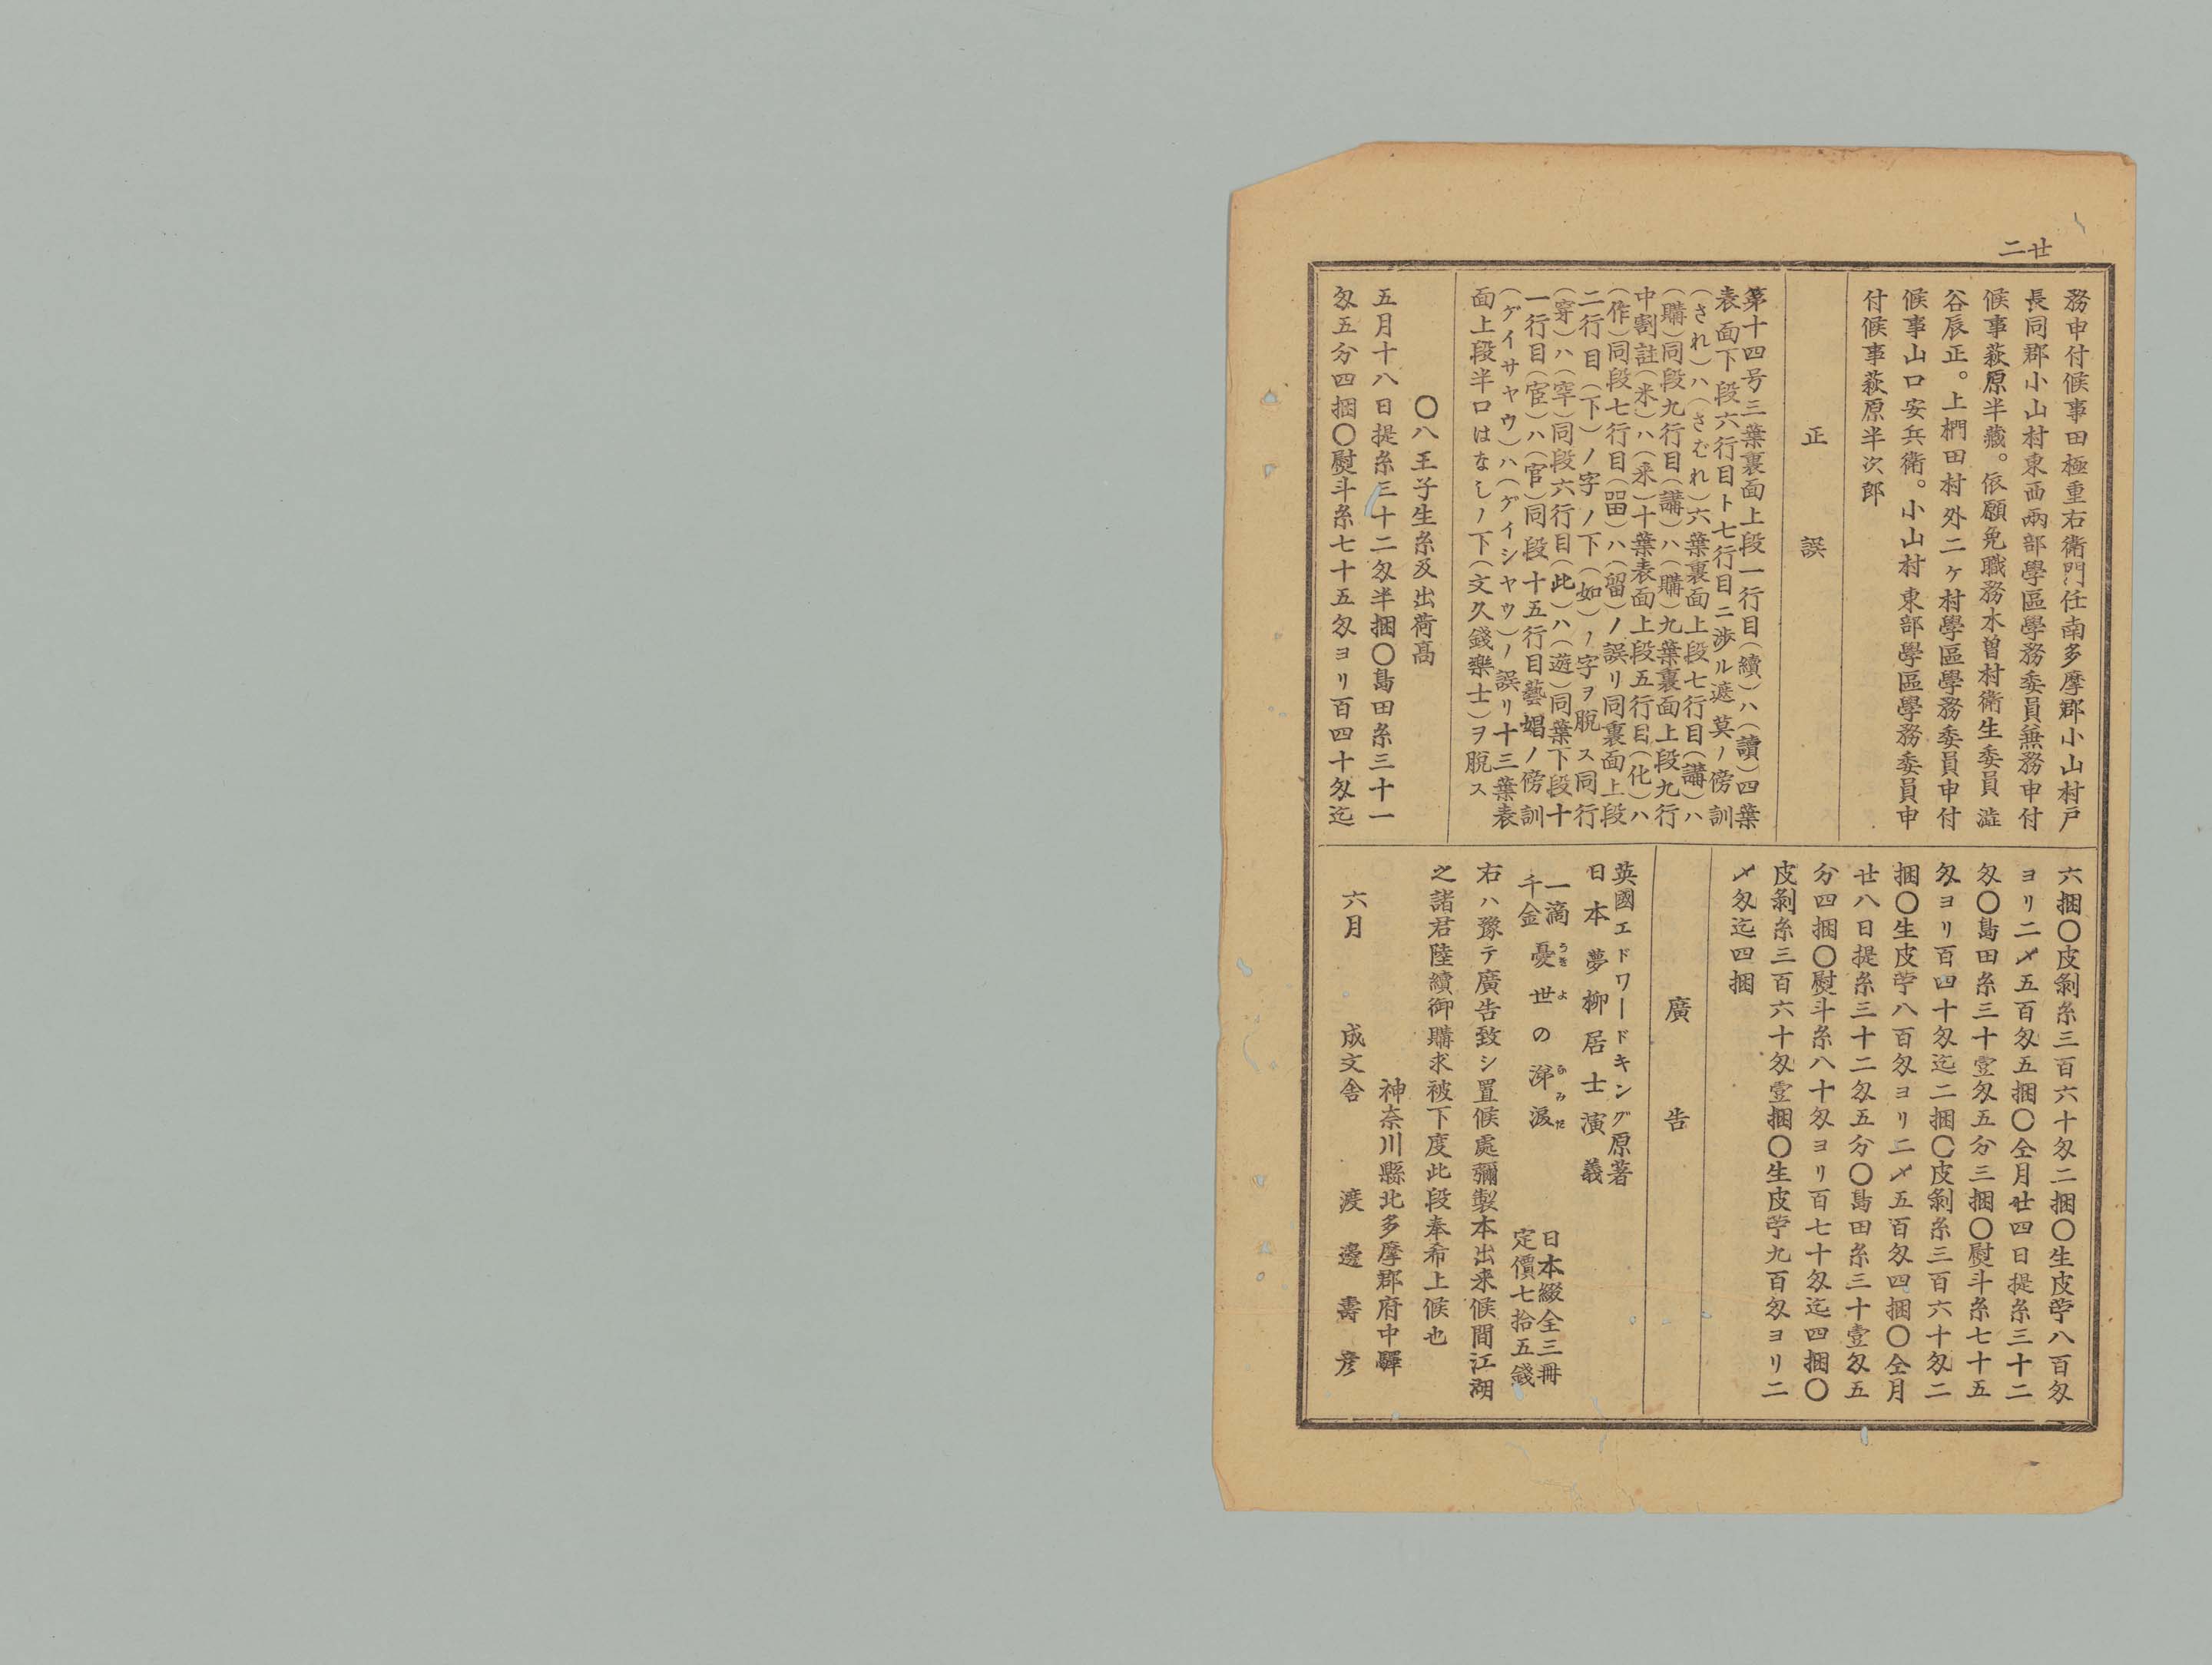 廿二
務申付候事田極重右衞門任南多摩郡小山村戸
長同郡小山村東西兩部學區學務委員兼務申付
候事萩原半藏。依願免職務木曽村衞生委員澁
谷辰正。上椚田村外二ヶ村學區學務委員申付
候事山口安兵衞。小山村東部學區學務委員申
付候事萩原半次郎
正誤
第十四号三葉裏面上段一行目(續)ハ(讀)四葉
表面下段六行目ト七行目ニ渉ル遮莫ノ傍訓
(され)ハ(さむれ)六葉裏面上段七行目(講)ハ
(購)同段九行目(講)ハ(購)九葉裏面上段九行
中割註(米)ハ(釆)十葉表面上段五行目(化)ハ
(作)同段七行目(畄)ハ(留)ノ誤リ同裏面上段
二行目(下)ノ字ノ下(如)ノ字ヲ脱ス同行
(穿)ハ(窂)同段六行目(此)ハ(遊)同葉下段十
一行目(宦)ハ(官)同段十五行目藝娼ノ傍訓
(ゲイサヤウ)ハ(ゲイシヤウ)ノ誤リ十三葉表
面上段半口はなしノ下(文久錢樂士)ヲ脱ス
〇八王子生糸及出荷髙
五月十八日提糸三十二匁半捆〇島田糸三十一
匁五分四捆〇熨斗糸七十五匁ヨリ百四十匁迄
六捆〇皮剝糸三百六十匁二捆〇生皮苧八百匁
ヨリ二〆五百匁五捆〇仝月廿四日提糸三十二
匁〇島田糸三十壹匁五分三捆〇熨斗糸七十五
匁ヨリ百四十匁迄二捆〇皮剝糸三百六十匁二
捆〇生皮苧八百匁ヨリ二〆五百匁四捆〇仝月
廿八日提糸三十二匁五分〇島田糸三十壹匁五
分四捆〇熨斗糸八十匁ヨリ百七十匁迄四捆〇
皮剝糸三百六十匁壹捆〇生皮苧九百匁ヨリ二
〆匁迄四捆
廣告
英國エドワードキング原著
日本夢柳居士演義
一滴千金憂世の涕涙
うきよ なみだ
日本綴全三冊
定價七拾五錢
右ハ豫テ廣告致シ置候處彌製本出来候間江湖
之諸君陸續御購求被下度此段奉希上候也
神奈川縣北多摩郡府中驛
六月 成文舎 渡邊壽彦